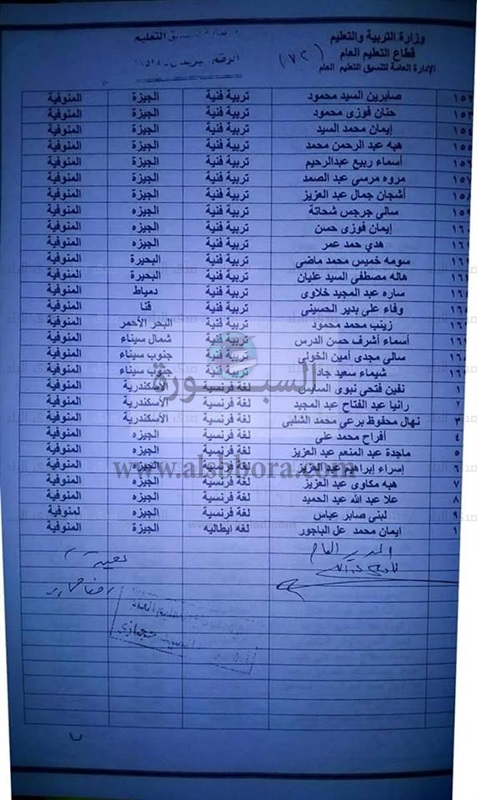 وزارة التربية والتعليم
قطاع التعليم العام
(٧٢)
الإدارة العامة لتنسيق التعليم العام
التعليم
صابرين السيد محمود تربية فنية الجيزة المنوفية
حنان فوزى محمود تربية فنية الجيزة المنوفية
إيمان محمد السيد تربية فنية الجيزة المنوفية
هبه عبد الرحمن محمد تربية فنية الجيزة المنوفية
أسماء ربيع عبدالرحيم تربية فنية الجيزة المنوفية
مروه مرسى عبد الصمد تربية فنية الجيزة المنوفية
أشجان جمال عبد العزيز تربية فنية الجيزة المنوفية
سالى جرجس شحاتة تربية فنية الجيزه المنوفية
إيمان فوزى حسن تربية فنية الجيزه المنوفية
هدي حمد عمر تربية فنية الجيزه المنوفية
سومه خميس محمد ماضى تربية فنية البحيرة المنوفية
هاله مصطفى السيد عليان تربية فنية البحيرة المنوفية
ساره عبد المجيد خلاوى تربية فنية دمياط المنوفية
وفاء على بدير الحسينى تربية فنية قنا المنوفية
زينب محمد محمود تربية فنية البحر الأحمر المنوفية
أسماء أشرف حسن الدرس تربية فنية شمال سيناء المنوفية
سالى مجدى أمين الخولى تربية فنية جنوب سيناء المنوفية
شيماء سعيد جاد تربية فنية جنوب سيناء المنوفية
١ نفين فتحي نبوى لغة فرنسية الأسكندرية المنوفية
٢ رانيا عبد الفتاح عبد المجيد لغة فرنسية الأسكندرية المنوفية
٣ نهال محفوظ برعى محمد الشلبى لغة فرنسية الأسكندرية المنوفية
٤ أفراح محمد على لغة فرنسية الجيزه المنوفية
٥ ماجدة عبد المنعم عبد العزيز لغة فرنسية الجيزه المنوفية
٦ إسراء إبراهيم عبد العزيز لغة فرنسية الجيزه المنوفية
٧ هبه مكاوى عبد العزيز لغة فرنسية الجيزه المنوفية
٨ علا عبد الله عبد الحميد لغة فرنسية الجيزه المنوفية
٩ لبنى صابر عباس لغة فرنسية الجيزه لمنوفية
١ ايمان محمد عل الباجور لغه ايطاليه الجيزة المنوفية
السبورة
www.alsbbora.com
المدير العام
حجازى
٧